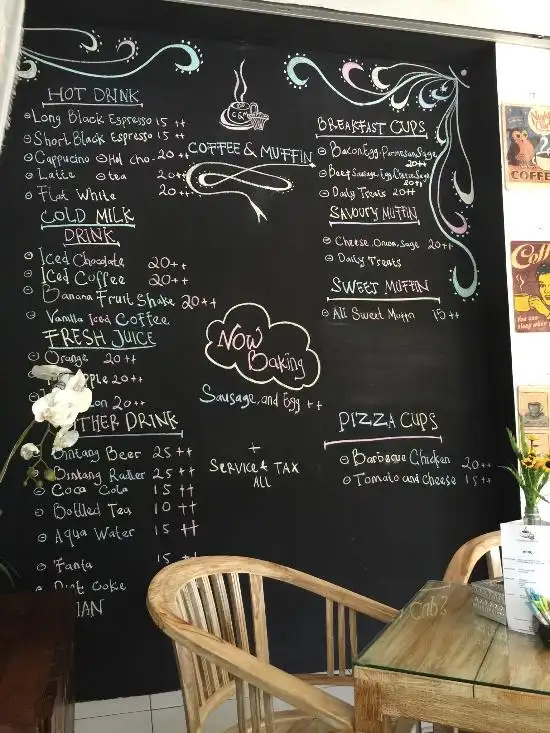 HOT DRINK
Long Black Espresso 15 ++
Short Black Espresso 15 ++
Cappucino Hot Cho. 20 ++
Latte tea 20++
Flat White 20++
COLD MILK
DRINK
Iced Chocolate 20++
Iced Coffee 20++
Banana Fruit Shake 20++
Vanilla Iced Coffee
FRESH JUICE
Orange 20++
pple 20++
on 20++
THER DRINK
Bintang Beer 25 ++
Bintang Radler 25 ++
Coca Cola 15 ++
Bottled Tea 10 ++
Aqua Water 15 ++
Fanta 15 ++
Diet Coke
IAN
C&M
COFFEE & MUFFIN
NOW
Baking
Sausage, and Egg ++
+
SERVICE & TAX
ALL
BREAKFAST CUPS
Bacon, Egg, Parmesan, Sage
20++
Beef Sausage, Egg, Cheese, Sage
20++
Daily Treats 20++
SAVOURY MUFFIN
Cheese, Onion, Sage 20++
Daily Treats
SWEET MUFFIN
All Sweet Muffin 15++
PIZZA CUPS
Barbeque Chicken 20++
Tomato and Cheese 15++
24
COFFEE
Coff
You can
sleep when